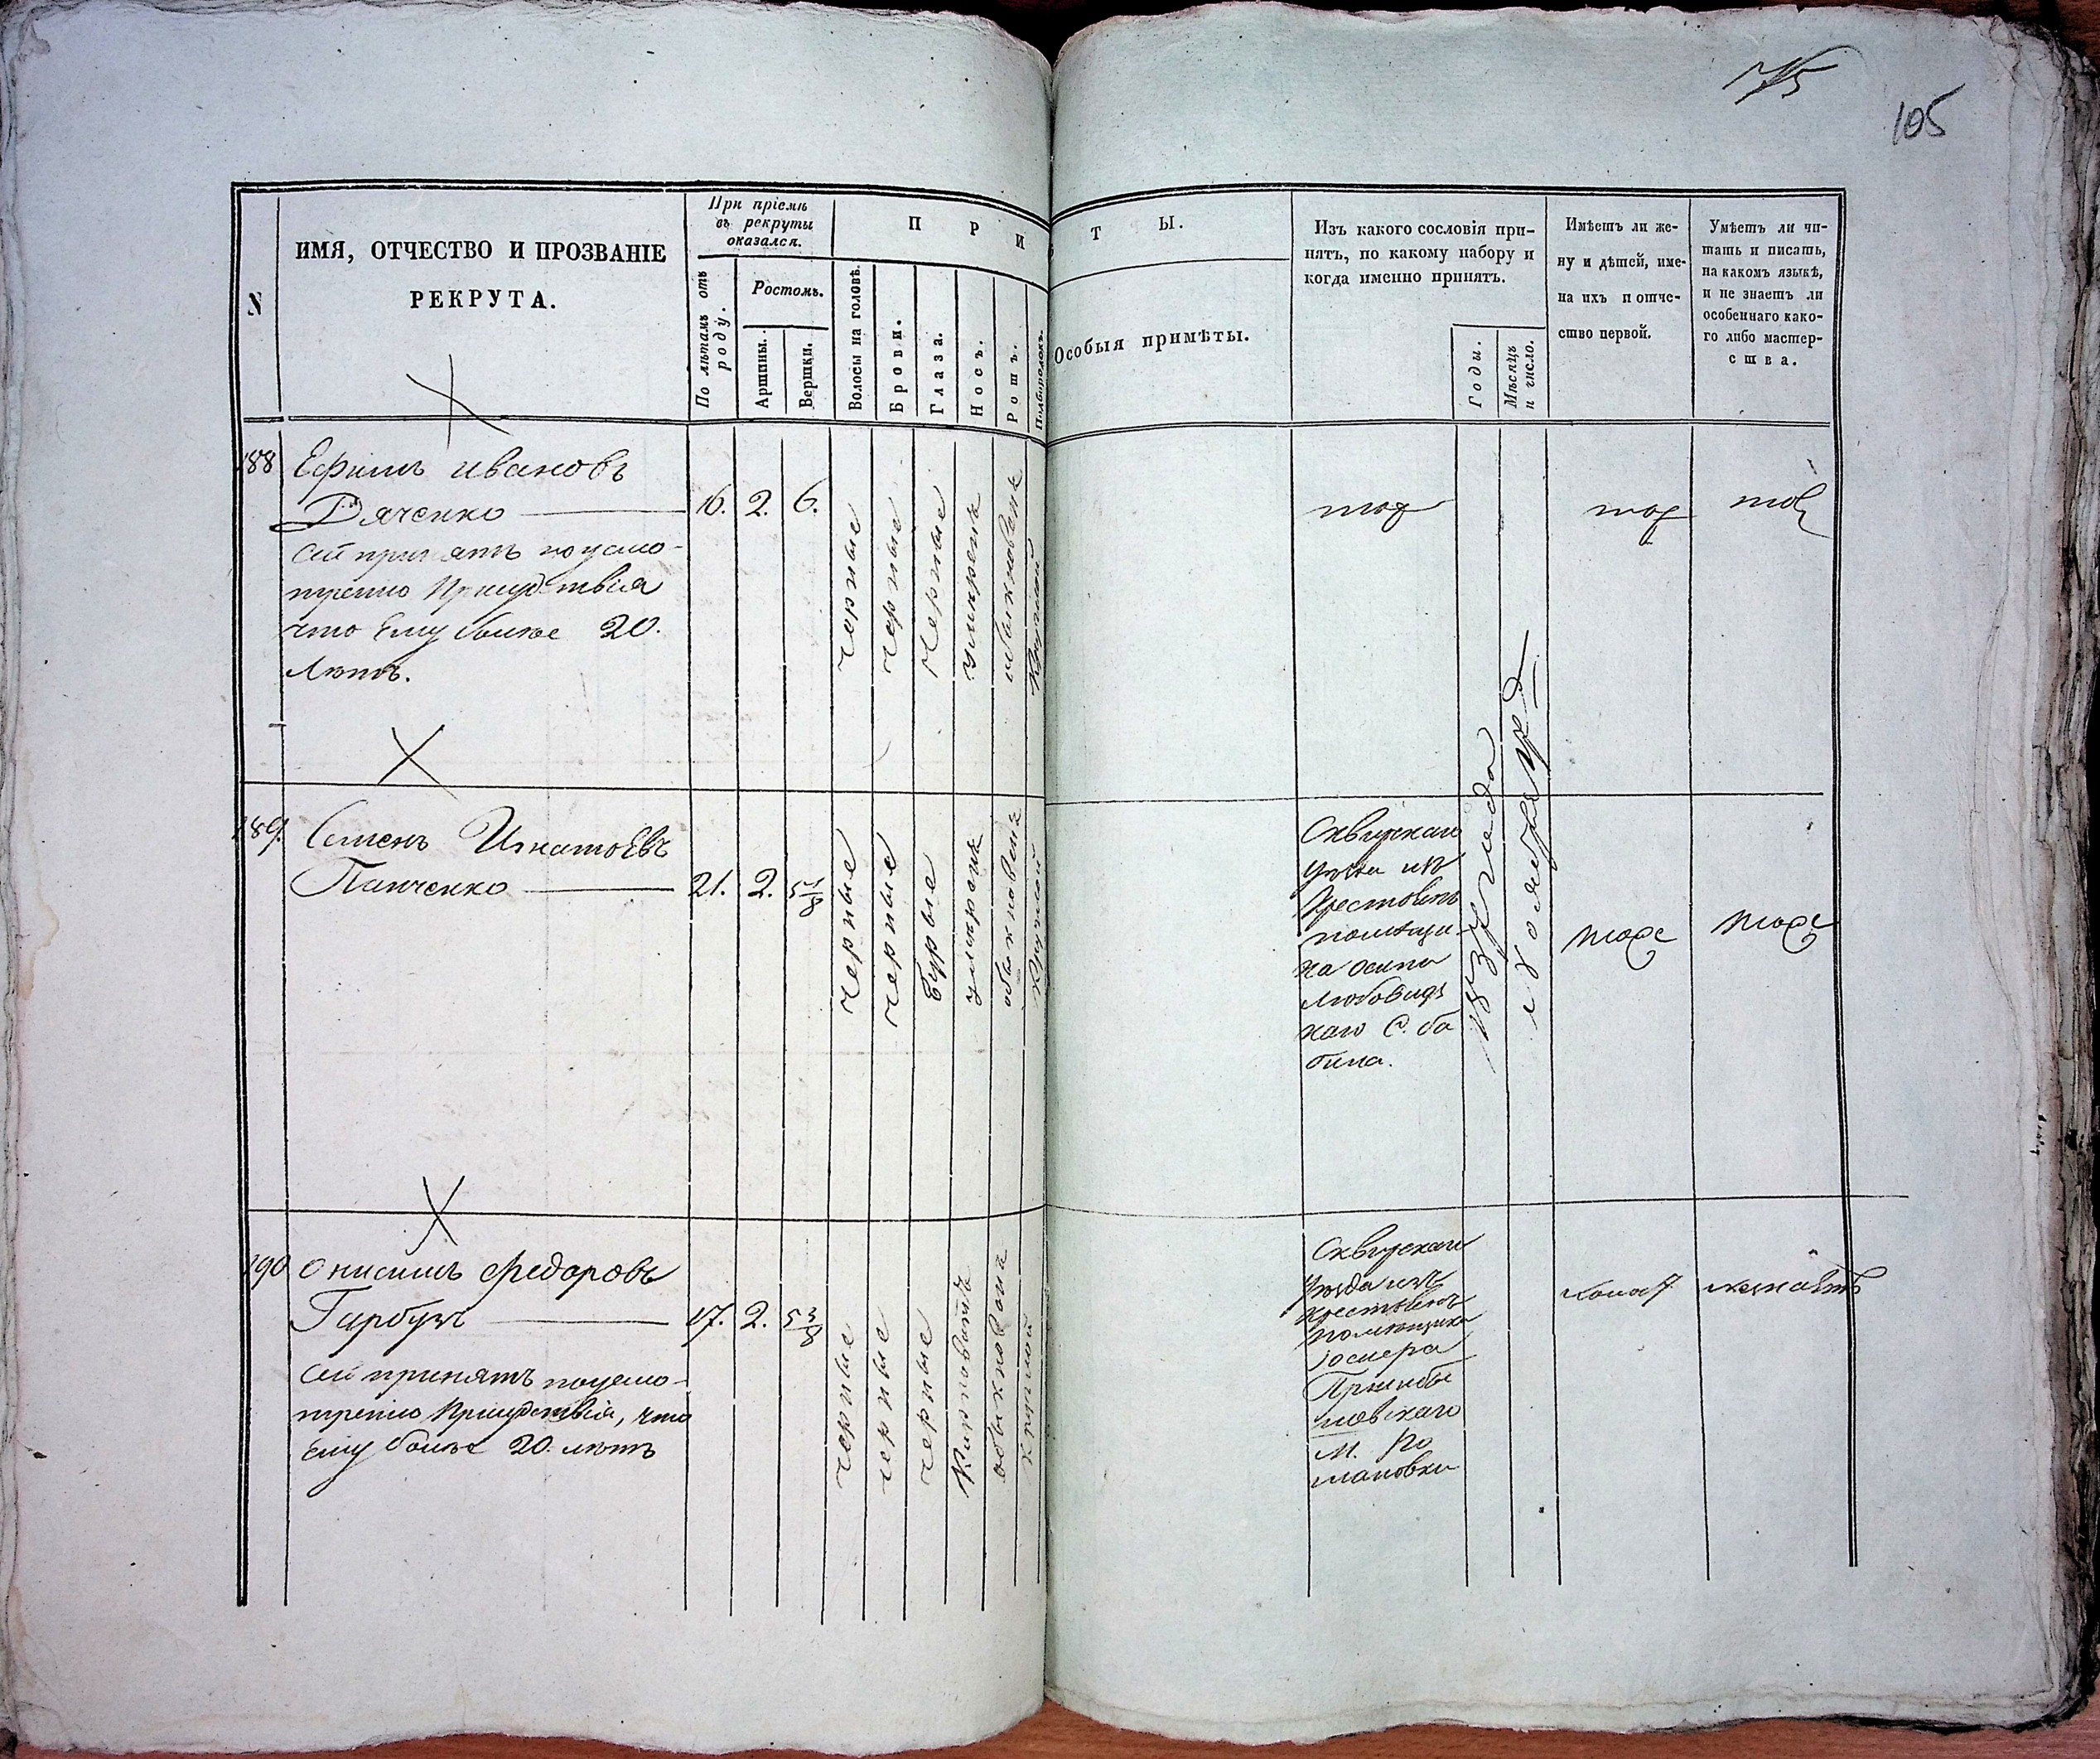 105
N
ИМЯ, ОТЧЕСТВО И ПРОЗВАНІЕ
РЕКРУТА.
При пріемѣ
въ рекруты
оказался.
По лѣтамъ отъ
роду.
Ростомъ.
Аршины.
Вершки.
ПРИ
Волосы на головѣ.
Брови.
Глаза.
Носъ.
Ротъ.
Подбородокъ.
ТЫ.
Особыя примѣты.
Изъ какого сословія при-
нятъ, по какому набору и
когда именно принятъ.
Годы.
Мѣсяцъ
и число.
Имѣетъ ли же-
ну и дѣтей, име-
на ихъ и отче-
ство первой.
Умѣетъ ли чи-
тать и писать,
на какомъ языкѣ,
и не знаетъ ли
особеннаго како-
го либо мастер-
ства.
188
Ефимъ Ивановъ
Дяченко
16. 2. 6.
Сей принятъ по усмо-
трению Присудствія
что Ему более 20.
Лѣтъ.
черные
черные
черные
умѣрень
обыкновень
Круглой
тож
тож
тож
189.
Семенъ Игнатоевъ
Панченко
21. 2. 5 1/8
черные
черные
бурые
умѣрень
обыкновень
Круглой
Сквирскаго
уѣзда изъ
Крестьянъ
помещи-
ка осипа
1837 года
ноября
тоже
тоже
190
Онисимъ Федоровъ
Гарбузъ
17. 2. 5 3/8
Сей принятъ поусмо-
трению Присудствія, что
Ему более 20. лѣтъ
черные
черные
черные
обыкновень
Круглой
Сквирскаго
уѣзда изъ
Крестьянъ
помѣщика
М. Ро
мановки